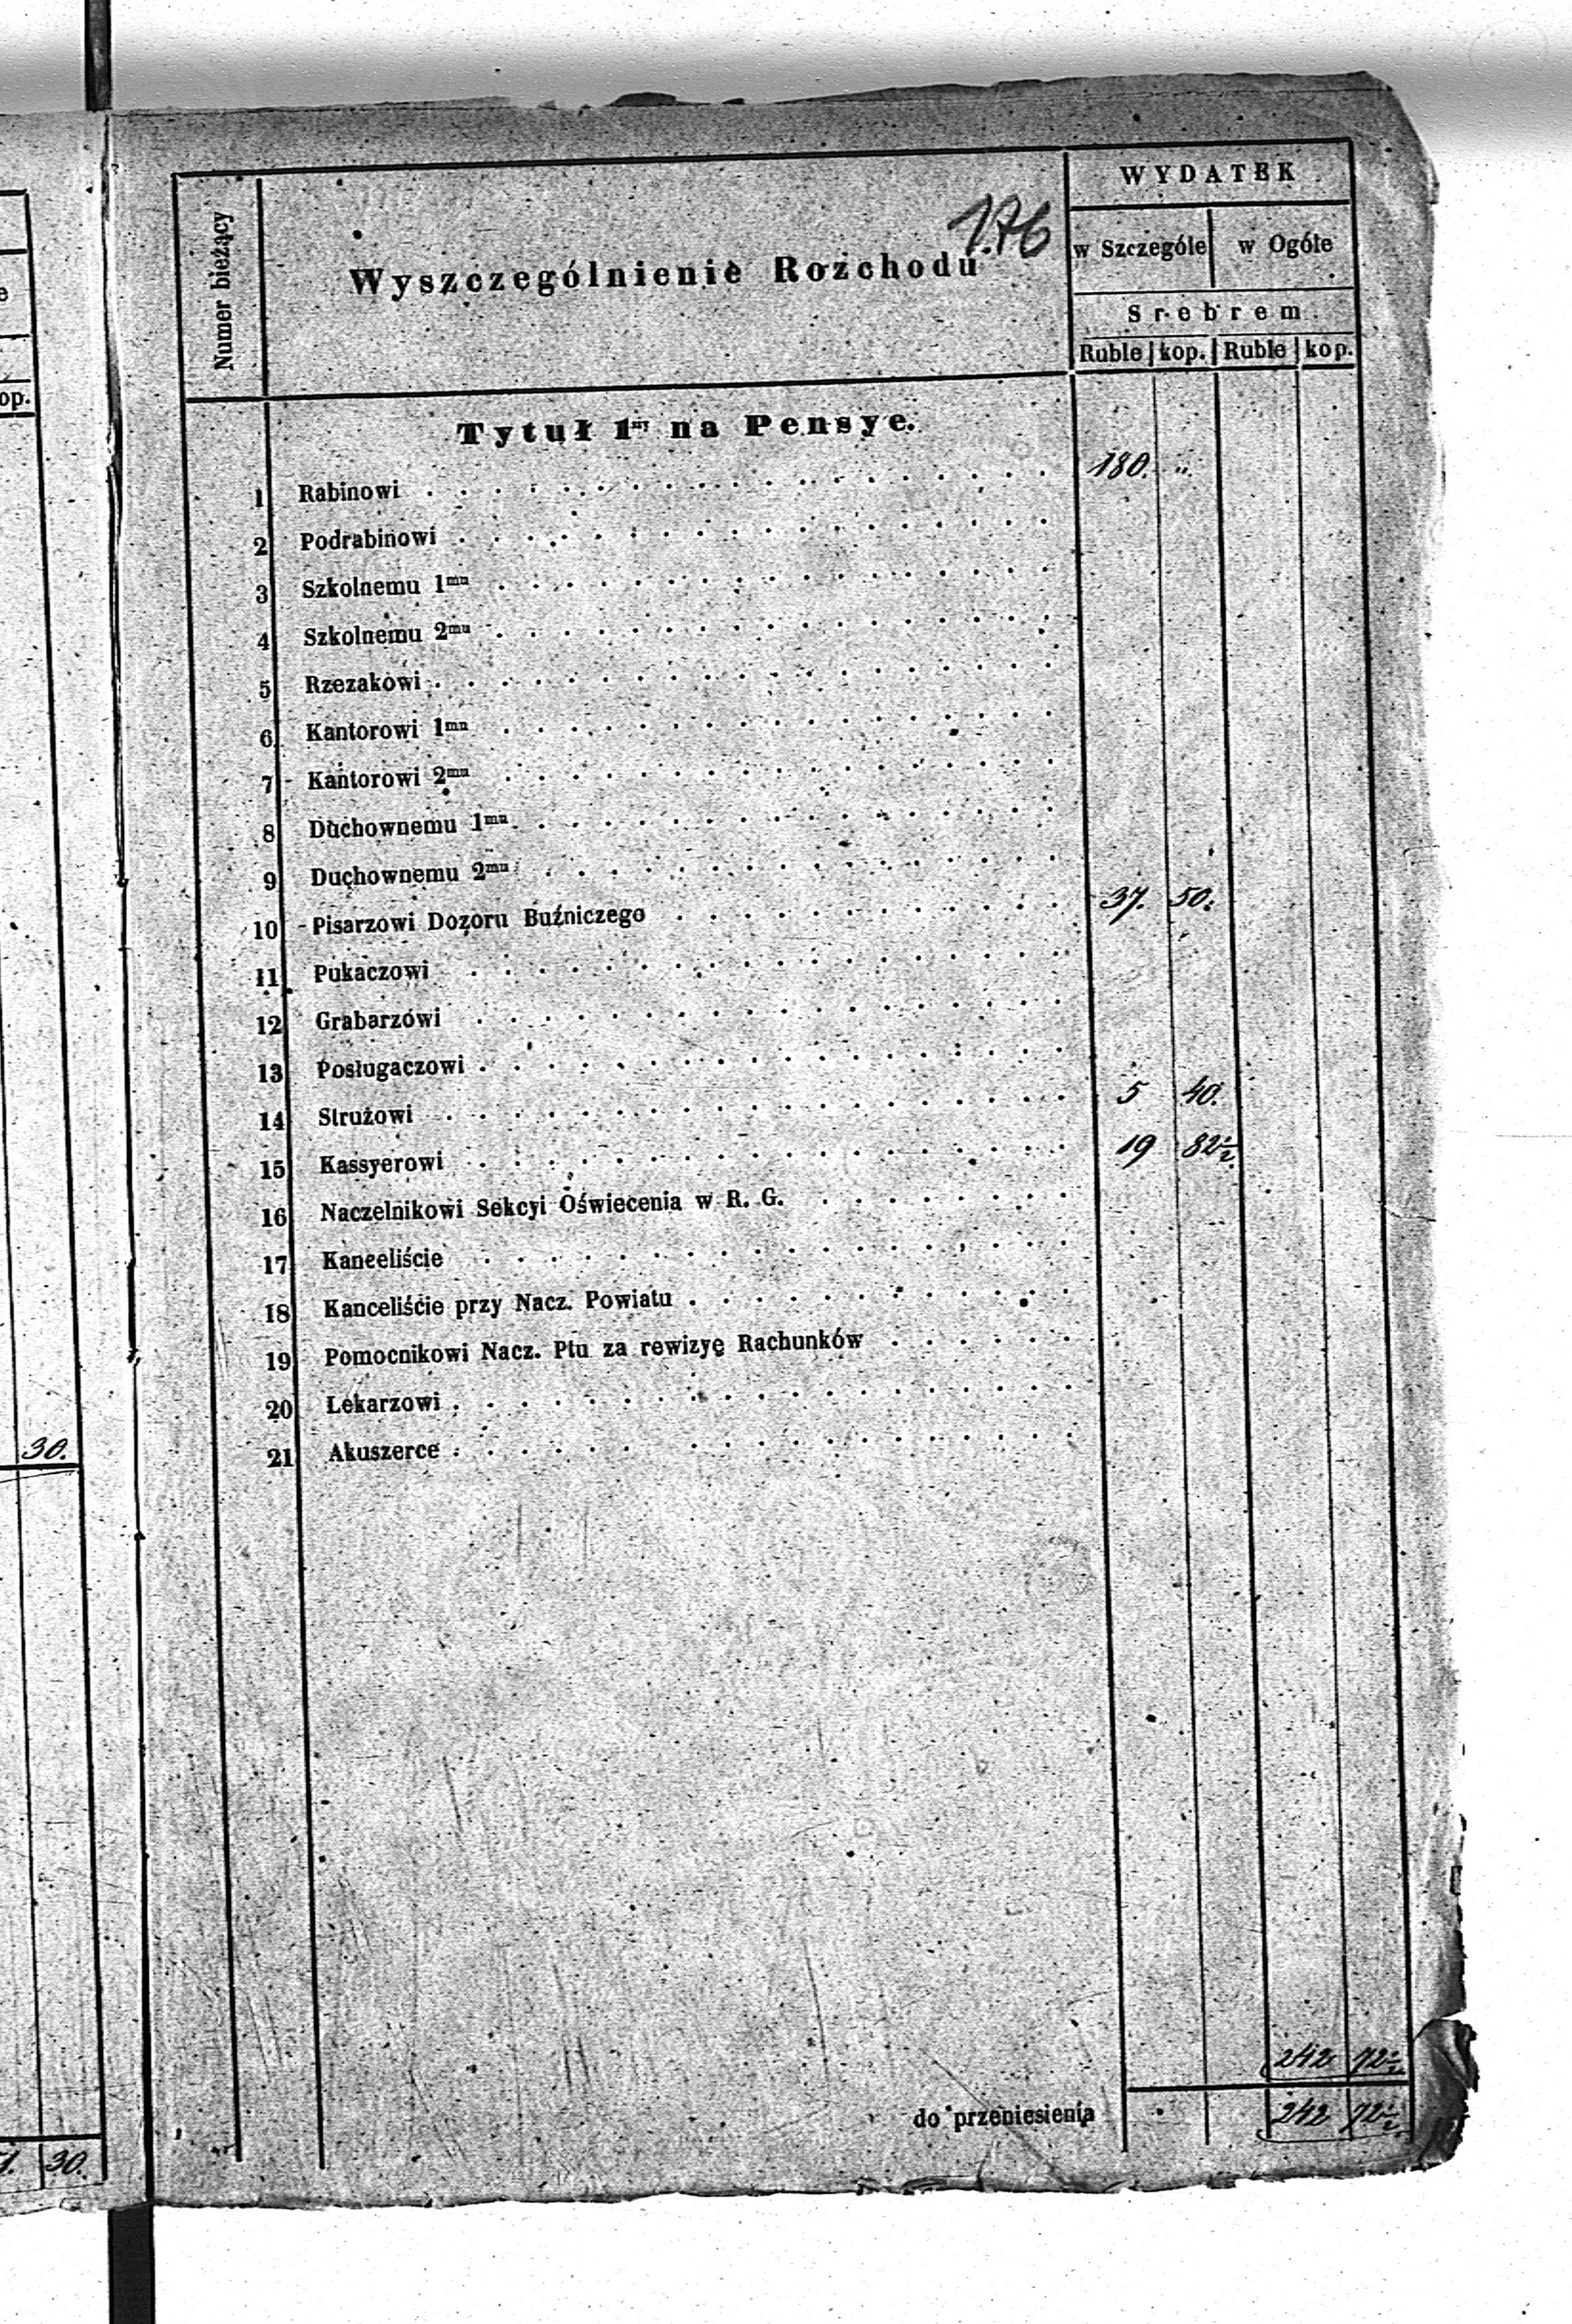 176
Numer bieżący
Wyszczególnienie Rozchodu
WYDATEK
w Szczególe w Ogóle
Srebrem
Ruble kop. Ruble kop.
Tytuł 1ny na Pensye.
1 Rabinowi 180. „
2 Podrabinowi
3 Szkolnemu 1mu
4 Szkolnemu 2mu
5 Rzezakowi
6 Kantorowi 1mu
7 Kantorowi 2mu
8 Duchownemu 1mu
9 Duchownemu 2mu
10 Pisarzowi Dozoru Buźniczego 37. 50.
11 Pukaczowi
12 Grabarzowi
13 Posługaczowi
14 Strużowi 5 40.
15 Kassyerowi 19 82½
16 Naczelnikowi Sekcyi Oświecenia w R. G.
17 Kanceliście
18 Kanceliście przy Nacz. Powiatu
19 Pomocnikowi Nacz. Ptu za rewizyę Rachunków
20 Lekarzowi
21 Akuszerce
242 72½
do przeniesienia 242 72½
op.
30.
30.